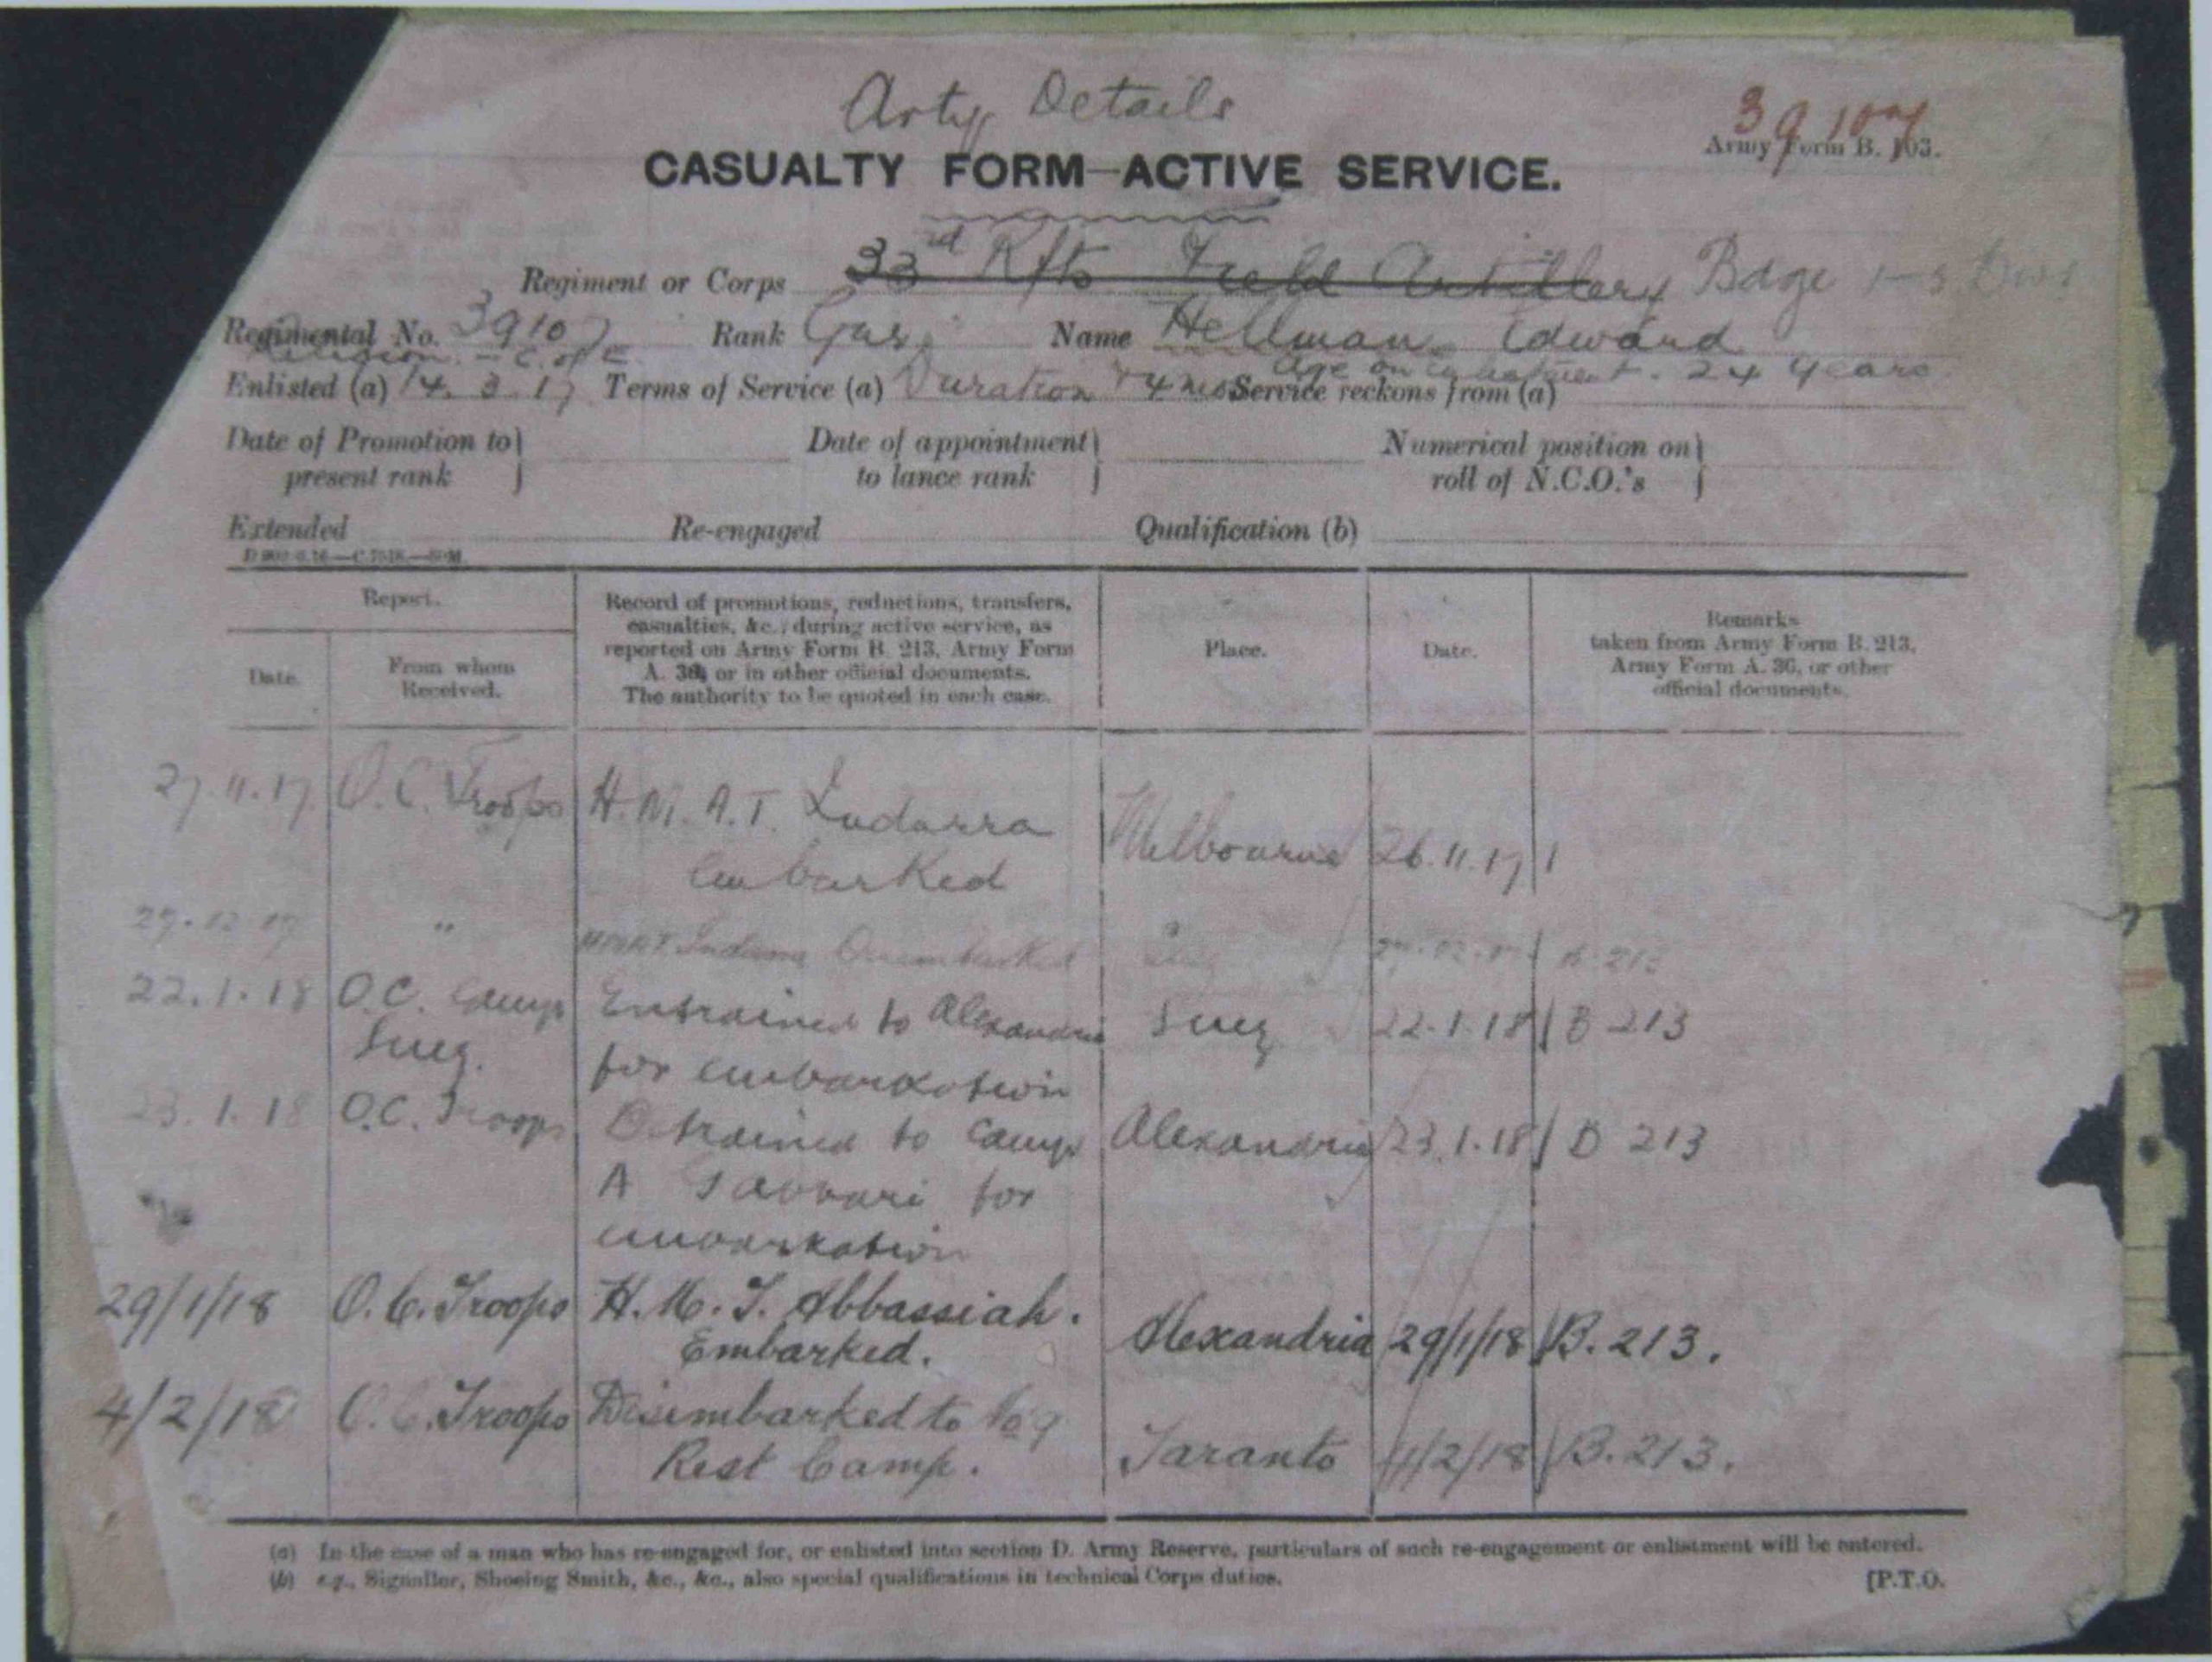 Arty Details
39107
Army Form B. 103.
CASUALTY FORM—ACTIVE SERVICE.
Regiment or Corps 33rd Rfts Field Artillery Bdge
Regimental No. 39107 Rank Gnr. Name Hellman Edward
Religion - C. of E. Age on enlistment - 24 years
Enlisted (a) 14. 3. 17 Terms of Service (a) Duration + 4 mos Service reckons from (a)
Date of Promotion to present rank Date of appointment to lance rank Numerical position on roll of N.C.O.'s
Extended Re-engaged Qualification (b)
Report.
Date. From whom Received.
Record of promotions, reductions, transfers,
casualties, &c., during active service, as
reported on Army Form B. 213, Army Form
A. 36, or in other official documents.
The authority to be quoted in each case.
Place.
Date.
Remarks
taken from Army Form B. 213,
Army Form A. 36, or other
official documents.
27.11.17 O.C. Troops H.M.A.T. Indarra Melbourne 26.11.17
embarked
27.12.17 " H.M.A.T. Indarra Disembarked Suez 27.12.17 B 213
22.1.18 O.C. Camp Entrained to Alexandria Suez 22.1.18 B 213
Suez. for embarkation
23.1.18 O.C. Troops Detrained to Camp Alexandria 23.1.18 B 213
A Gabbari for
embarkation
29/1/18 O.C. Troops H.M.T. Abbassiah. Alexandria 29/1/18 B. 213.
Embarked.
4/2/18 O.C. Troops Disembarked to No 9 Taranto 4/2/18 B. 213.
Rest Camp.
(a) In the case of a man who has re-engaged for, or enlisted into section D. Army Reserve, particulars of such re-engagement or enlistment will be entered.
(b) e.g., Signaller, Shoeing Smith, &c., &c., also special qualifications in technical Corps duties.
[P.T.O.